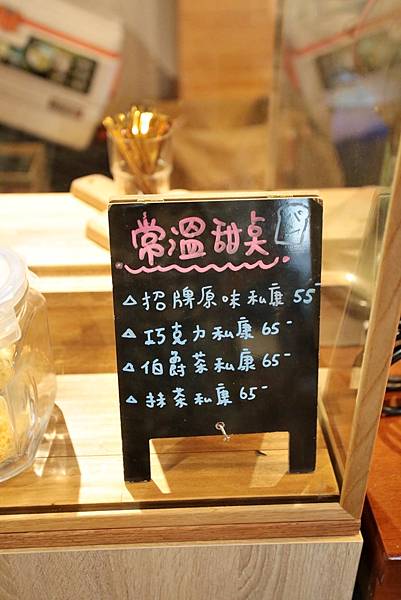 常溫甜桌
△招牌原味私康 55-
△巧克力私康 65-
△伯爵茶私康 65-
△抹茶私康 65-